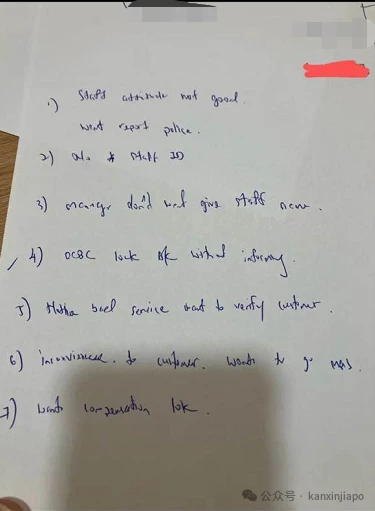 1) Staff attitude not good.
want report police.
2) staff ID
3) manager don't want give staff name.
4) OCBC lock a/c without informing.
5) bad service want to verify customer.
6) inconvenience to customer. wants to go MAS.
7) want compensation 10k.
公众号 · kanxinjiapo